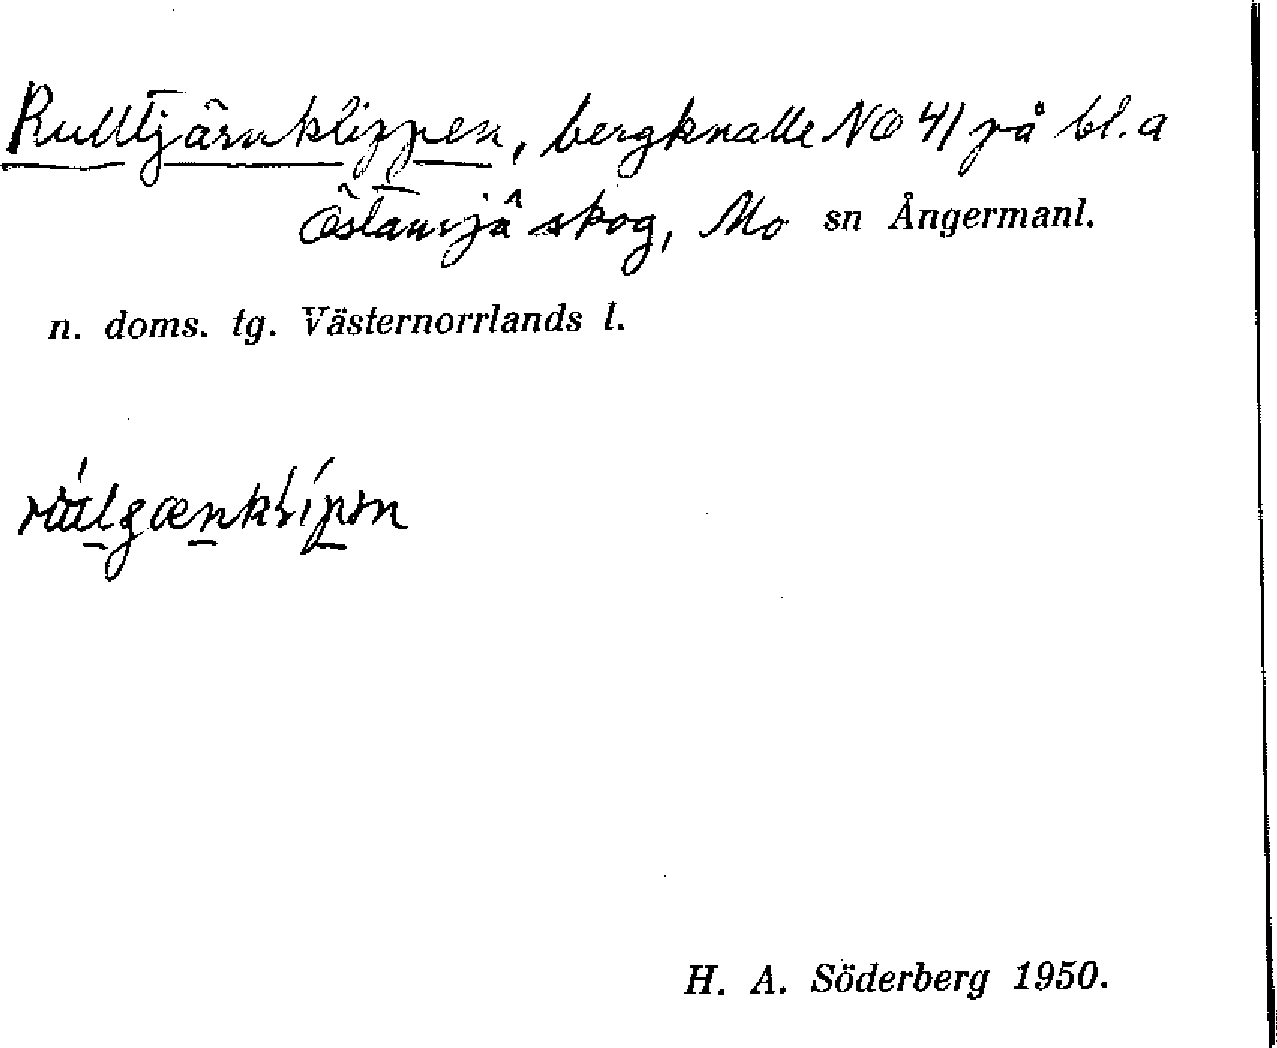 Rulltjärnklippen, bergknalle NO 41 på bl. a
Östansjö skog, Mo sn Ångermanl.
n. doms. tg. Västernorrlands l.
H. A. Söderberg 1950.